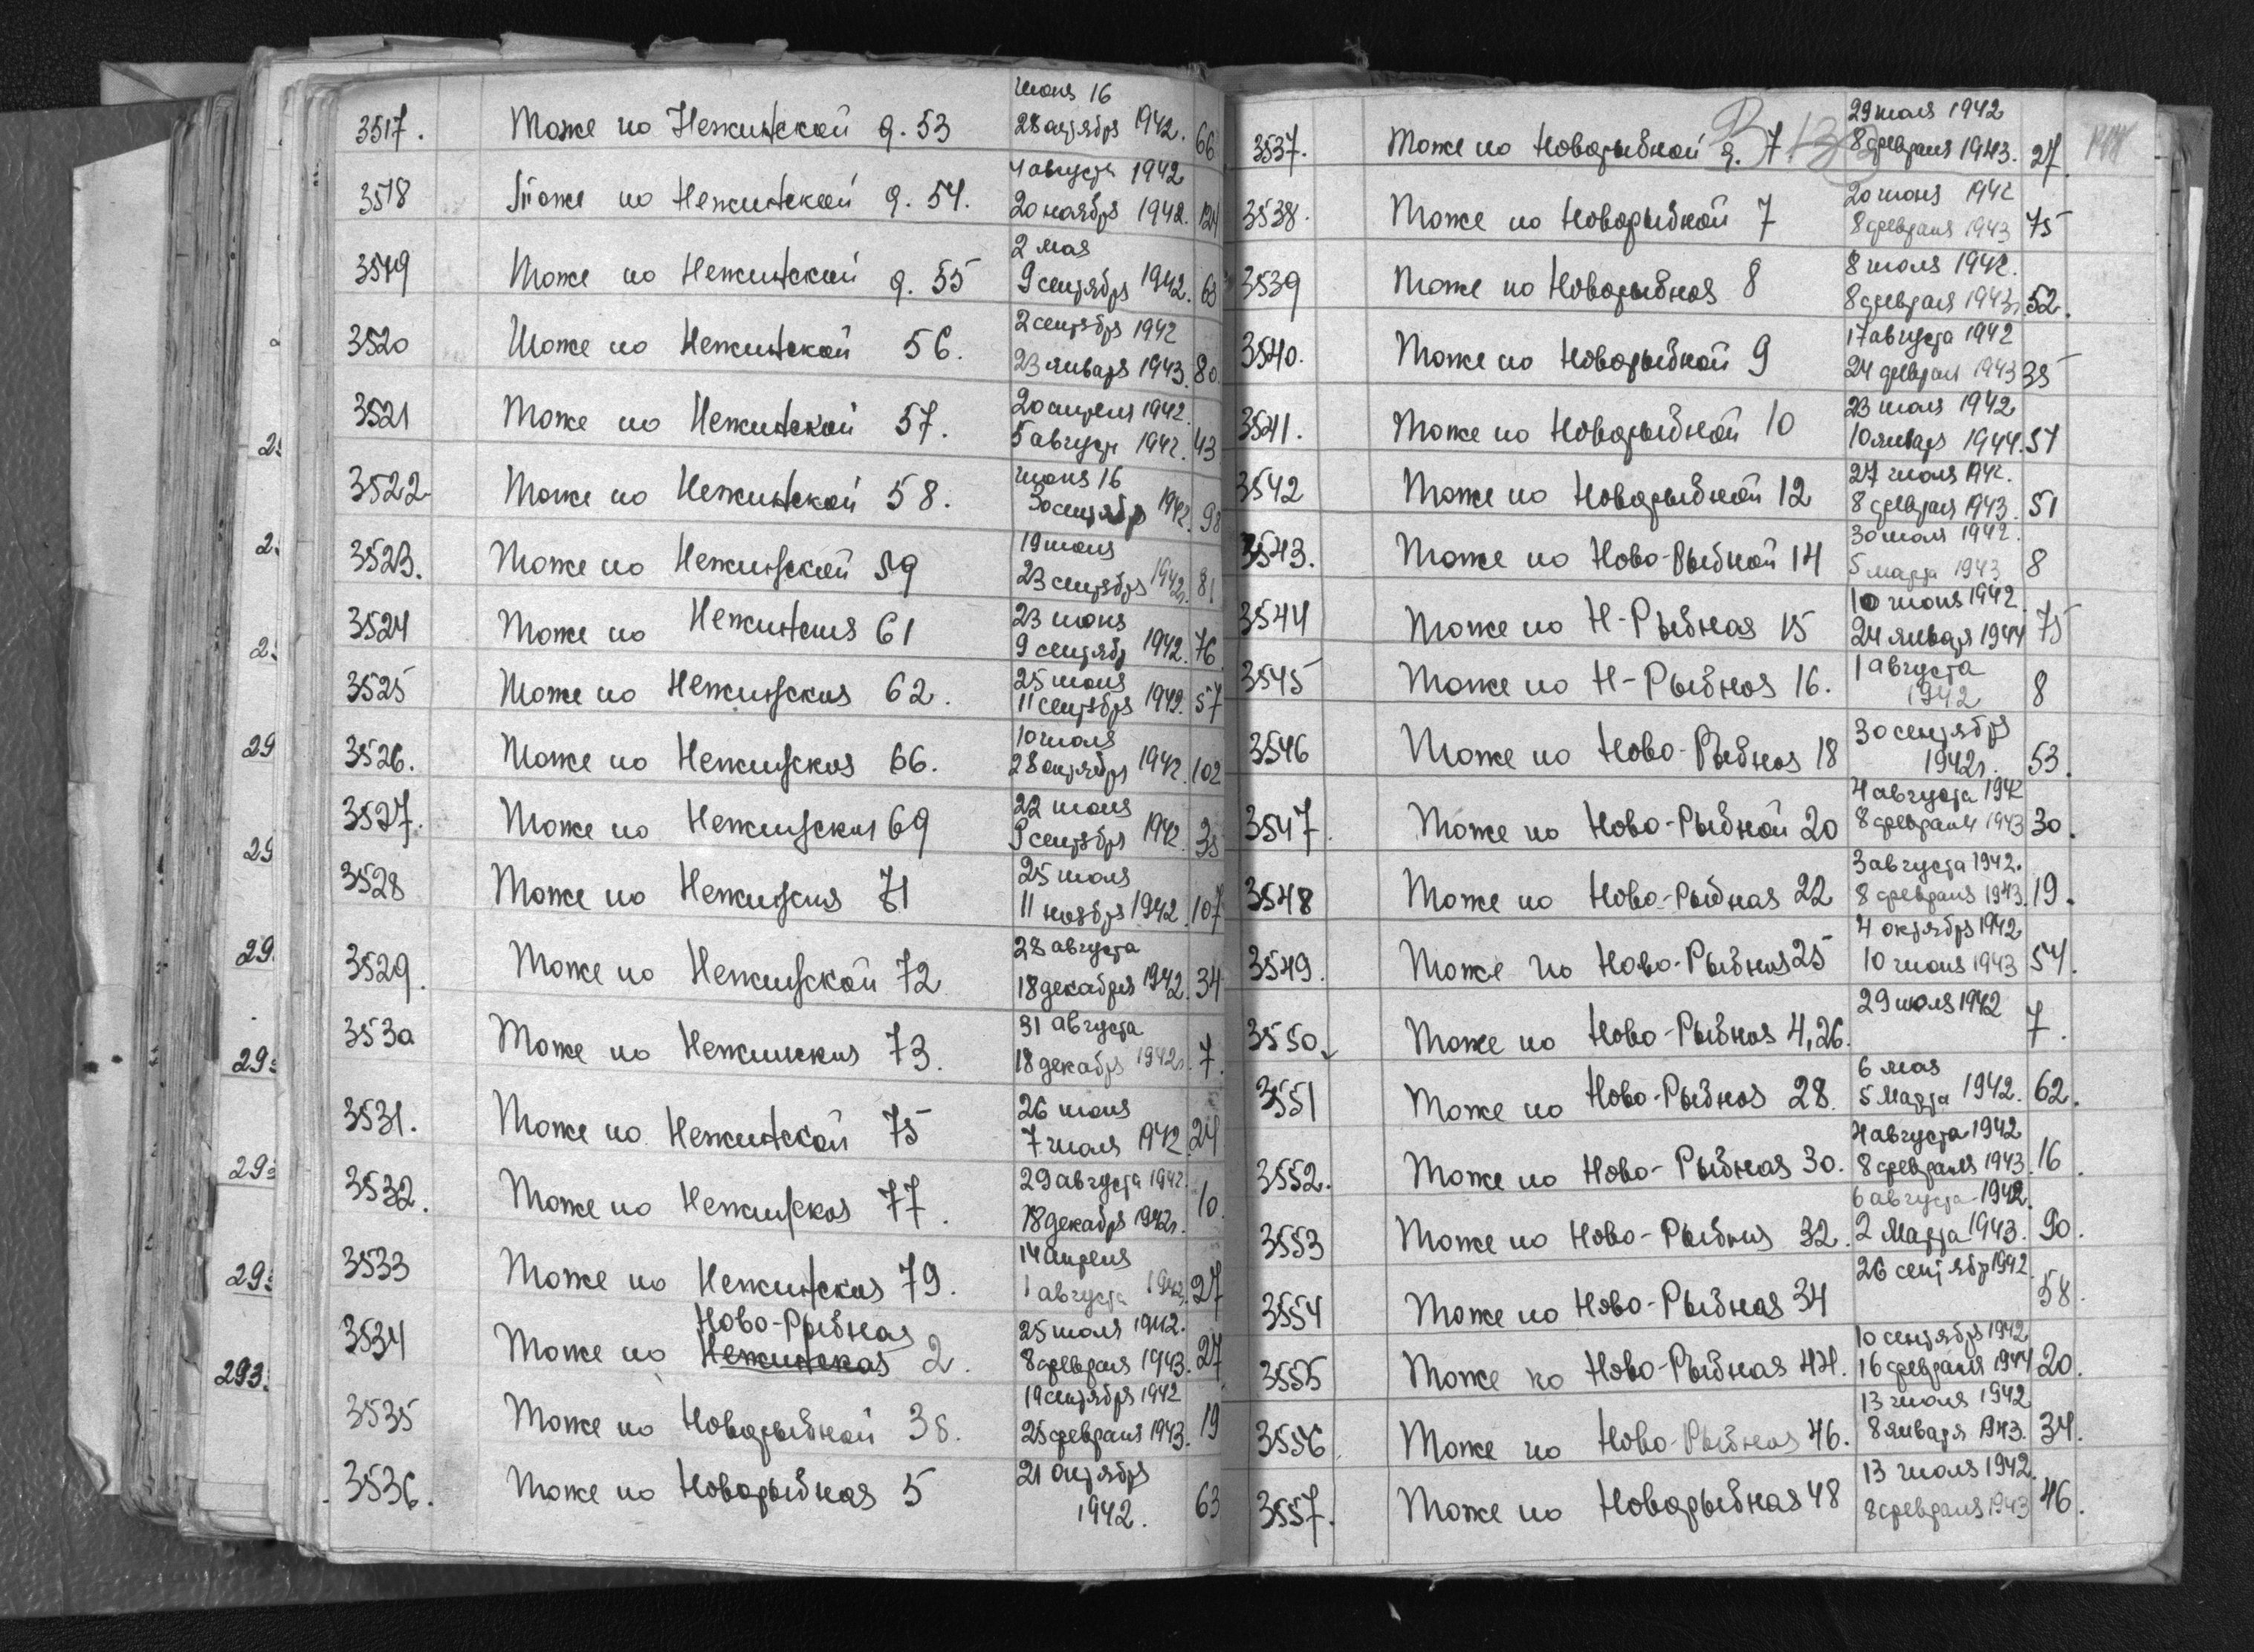 июня 16
3517. Тоже по Нежинской д. 53 28 октября 1942. 66
4 августа 1942
3518 Тоже по Нежинской д. 54. 20 ноября 1942. 124
2 мая
3519 Тоже по Нежинской д. 55 9 сентября 1942. 63
2 сентября 1942
3520 Тоже по Нежинской 56. 23 января 1943. 80.
20 апреля 1942
3521 Тоже по Нежинской 57. 5 августа 1942. 43
июня 16
3522 Тоже по Нежинской 58. 30 сентября 1942. 98
19 июня
3523. Тоже по Нежинской 59 23 сентября 1942г. 81
23 июня
3524 Тоже по Нежинская 61 9 сентября 1942. 76
25 июня
3525 Тоже по Нежинская 62. 11 сентября 1942. 57
10 июля
3526. Тоже по Нежинская 66. 28 октября 1942. 102
22 июня
3527. Тоже по Нежинская 69 9 сентября 1942.
25 июля
3528 Тоже по Нежинская 71 11 ноября 1942. 107
28 августа
3529. Тоже по Нежинской 72 18 декабря 1942. 34
31 августа
3530 Тоже по Нежинская 73. 18 декабря 1942г. 7.
26 июня
3531. Тоже по Нежинской 75 7 июля 1942. 24
29 августа 1942.
3532. Тоже по Нежинская 77. 18 декабря 1942г. 10.
14 апреля
3533 Тоже по Нежинская 79. 1 августа 1942. 27
Ново-Рыбная 25 июля 1942.
3534 Тоже по Нежинская 2. 8 февраля 1943. 27
19 сентября 1942
3535 Тоже по Новорыбной 38. 25 февраля 1943. 19
21 октября
3536. Тоже по Новорыбная 5 1942. 63
29 июля 1942
3537. Тоже по Новорыбной д. 7 8 февраля 1943. 27.
20 июня 1942
3538. Тоже по Новорыбной 7 8 февраля 1943 75
8 июля 1942.
3539 Тоже по Новорыбная 8 8 февраля 1943г. 52.
17 августа 1942
3540. Тоже по Новорыбной 9 24 феврал 1943 35
23 июля 1942
3541. Тоже по Новорыбной 10 10 января 1944. 57
27 июля 1942.
3542 Тоже по Новорыбной 12 8 февраля 1943. 51
30 июля 1942.
3543. Тоже по Ново-Рыбной 14 5 марта 1943 8
10 июня 1942
3544 Тоже по Н-Рыбная 15 24 января 1944 75
1 августа
3545 Тоже по Н-Рыбная 16. 1942 8
30 сентября
3546 Тоже по Ново-Рыбная 18 1942г. 53.
4 августа 1942
3547. Тоже по Ново-Рыбной 20 8 февраля 1943 30.
3 августа 1942.
3548 Тоже по Ново-Рыбная 22 8 февраля 1943. 19.
4 октября 1942
3549. Тоже по Ново-Рыбная 25 10 июня 1943 54.
29 июля 1942
3550 Тоже по Ново-Рыбная 4,26. 7.
6 мая
3551 Тоже по Ново-Рыбная 28. 5 марта 1942. 62.
4 августа 1942
3552. Тоже по Ново-Рыбная 30. 8 февраля 1943. 16.
6 августа 1942.
3553 Тоже по Ново-Рыбная 32. 2 Марта 1943. 90.
26 сентябр 1942
3554 Тоже по Ново-Рыбная 34 58.
10 сентября 1942
3555 Тоже по Ново-Рыбная 44. 16 февраля 1944 20.
13 июля 1942
3556 Тоже по Ново-Рыбная 46. 8 января 1943. 34.
13 июля 1942.
3557. Тоже по Новорыбная 48 8 февраля 1943 46.